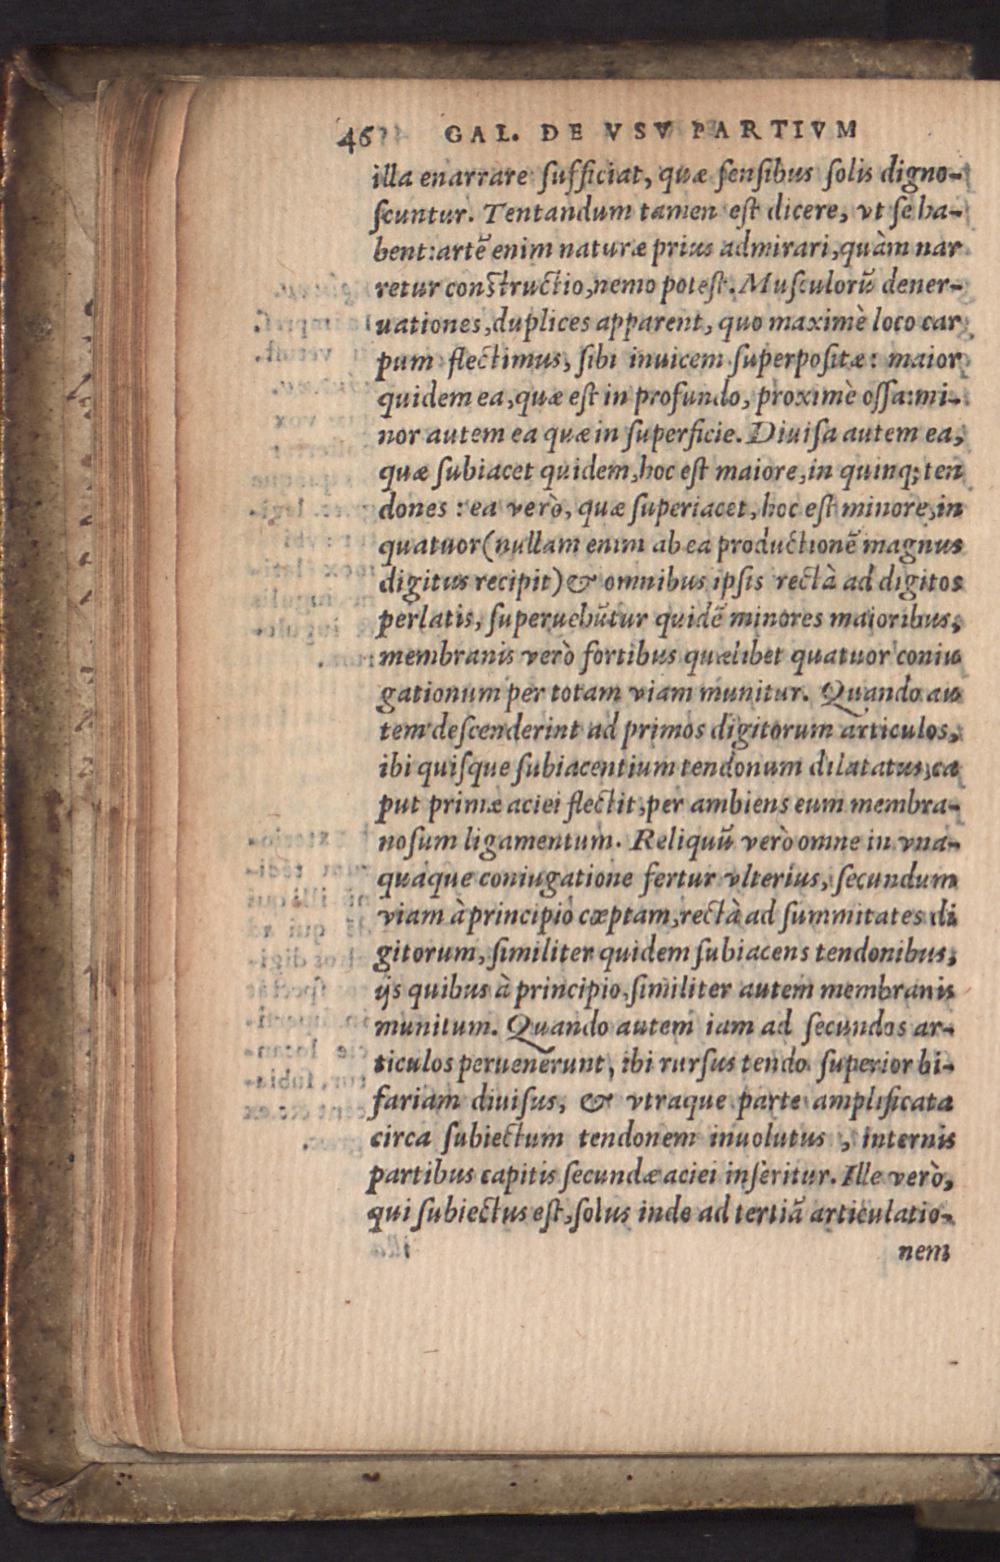 46 GAL. DE VSV PARTIVM
illa enarrare ſufficiat, quæ ſenſibus ſolis digno-
ſcuntur. Tentandum tamen eſt dicere, vt ſe ha-
bent: artē enim naturæ prius admirari, quàm nar
retur conſtructio, nemo poteſt. Muſculorū dener-
uationes, duplices apparent, quo maximè loco car
pum flectimus, ſibi inuicem ſuperpoſitæ: maior
quidem ea, quæ eſt in profundo, proximè oſſa: mi-
nor autem ea quæ in ſuperficie. Diuiſa autem ea,
quæ ſubiacet quidem, hoc eſt maiore, in quinq; ten
dones: ea verò, quæ ſuperiacet, hoc eſt minore, in
quatuor (nullam enim ab ea productionē magnus
digitus recipit) & omnibus ipſis rectà ad digitos
perlatis, ſuperuehūtur quidē minores maioribus,
membranis verò fortibus quælibet quatuor coniu
gationum per totam viam munitur. Quando au
tem deſcenderint ad primos digitorum articulos,
ibi quiſque ſubiacentium tendonum dilatatus, ca
put primæ aciei flectit, per ambiens eum membra-
noſum ligamentum. Reliquū verò omne in vna-
quaque coniugatione fertur vlterius, ſecundum
viam à principio cœptam, rectà ad ſummitates di
gitorum, ſimiliter quidem ſubiacens tendonibus,
ijs quibus à principio, ſimiliter autem membranis
munitum. Quando autem iam ad ſecundos ar-
ticulos peruenerunt, ibi rurſus tendo ſuperior bi-
fariam diuiſus, & vtraque parte amplificata
circa ſubiectum tendonem inuolutus, internis
partibus capitis ſecundæ aciei inſeritur. Ille verò,
qui ſubiectus eſt, ſolus inde ad tertiā articulatio-
nem